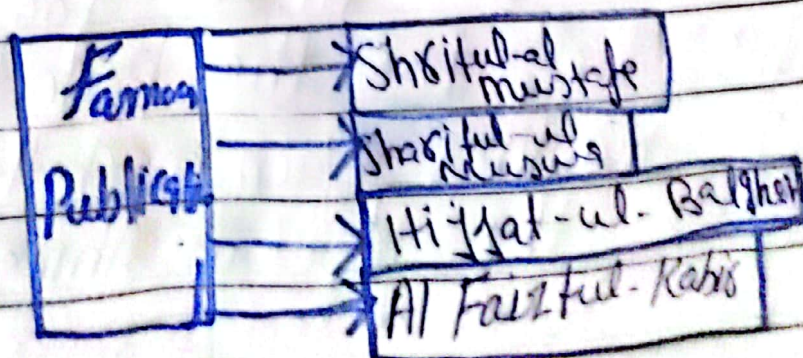 Famou
Publicat
Shritul-al
mustafe
Sharitul-ul
Hijjat-ul-Balghah
Al Faiztul-Kabir